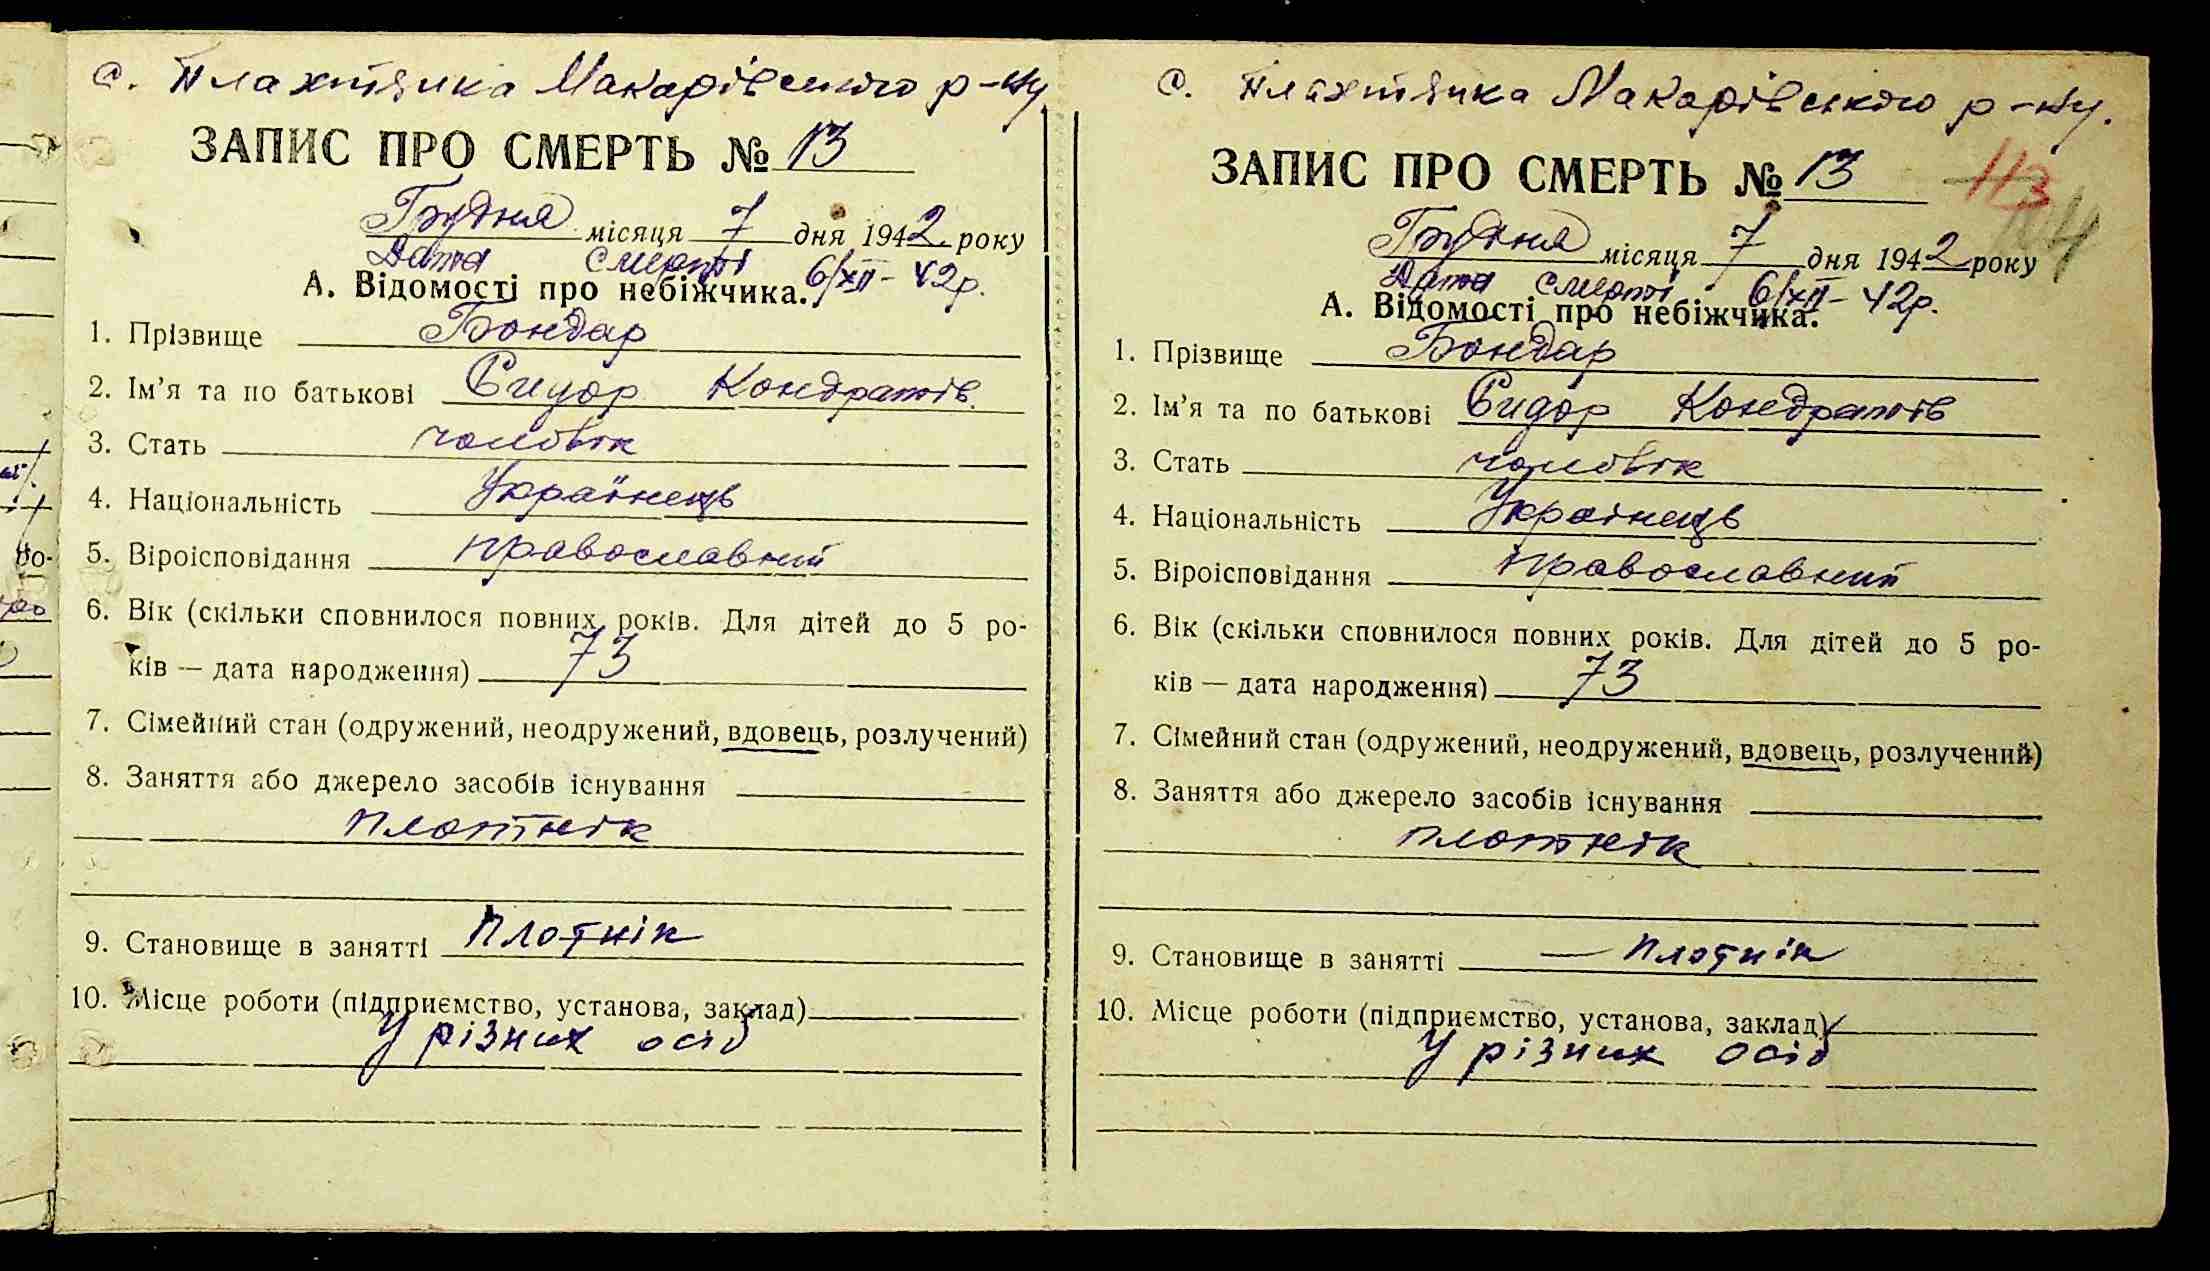 с. Плахтянка Макарівського р-ну
ЗАПИС ПРО СМЕРТЬ № 13
Грудня місяця 7 дня 1942 року
Дата смерті 6/XII - 42р.
А. Відомості про небіжчика.
1. Прізвище Бондар
2. Ім’я та по батькові Сидор Кондратів.
3. Стать чоловік
4. Національність Українець
5. Віроісповідання православний
6. Вік (скільки сповнилося повних років. Для дітей до 5 ро-
ків — дата народження) 73
7. Сімейний стан (одружений, неодружений, вдовець, розлучений)
8. Заняття або джерело засобів існування
плотнік
9. Становище в занятті плотнік
10. Місце роботи (підприємство, установа, заклад)
У різних осіб
с. Плахтянка Макарівського р-ну.
ЗАПИС ПРО СМЕРТЬ № 13
113
Грудня місяця 7 дня 1942 року
Дата смерті 6/XII - 42р.
А. Відомості про небіжчика.
1. Прізвище Бондар
2. Ім’я та по батькові Сидор Кондратів
3. Стать чоловік
4. Національність Українець
5. Віроісповідання православний
6. Вік (скільки сповнилося повних років. Для дітей до 5 ро-
ків — дата народження) 73
7. Сімейний стан (одружений, неодружений, вдовець, розлучений)
8. Заняття або джерело засобів існування
плотнік
9. Становище в занятті — плотнік
10. Місце роботи (підприємство, установа, заклад)
У різних осіб